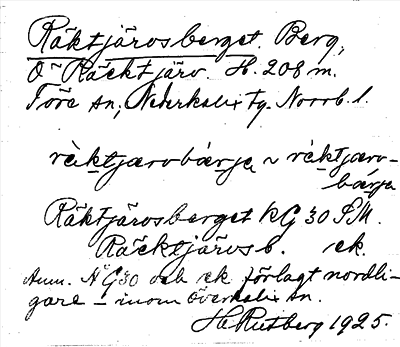 Räktjärvsberget. Berg,
O ~ Räcktjärv. H. 208 m.
Töre sn; Nederkalix tg. Norrb. l.
ràktjærvbǽrjẹ ~ ràktjærv-
bǽrja
Räktjärvsberget KG 30 SM.
Räcktjärvsb. ek.
Anm. KG30 och ek förlagt nordli-
gare – inom Överkalix sn.
H. Rutberg 1925.